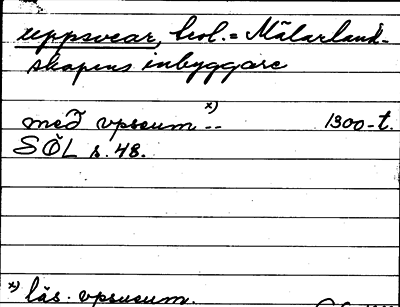 uppsvear, kol. = Mälarland-
skapens inbyggare
með vpsueum x) -- 1300-t.
SÖL s. 48.
x) läs. vpsueum.